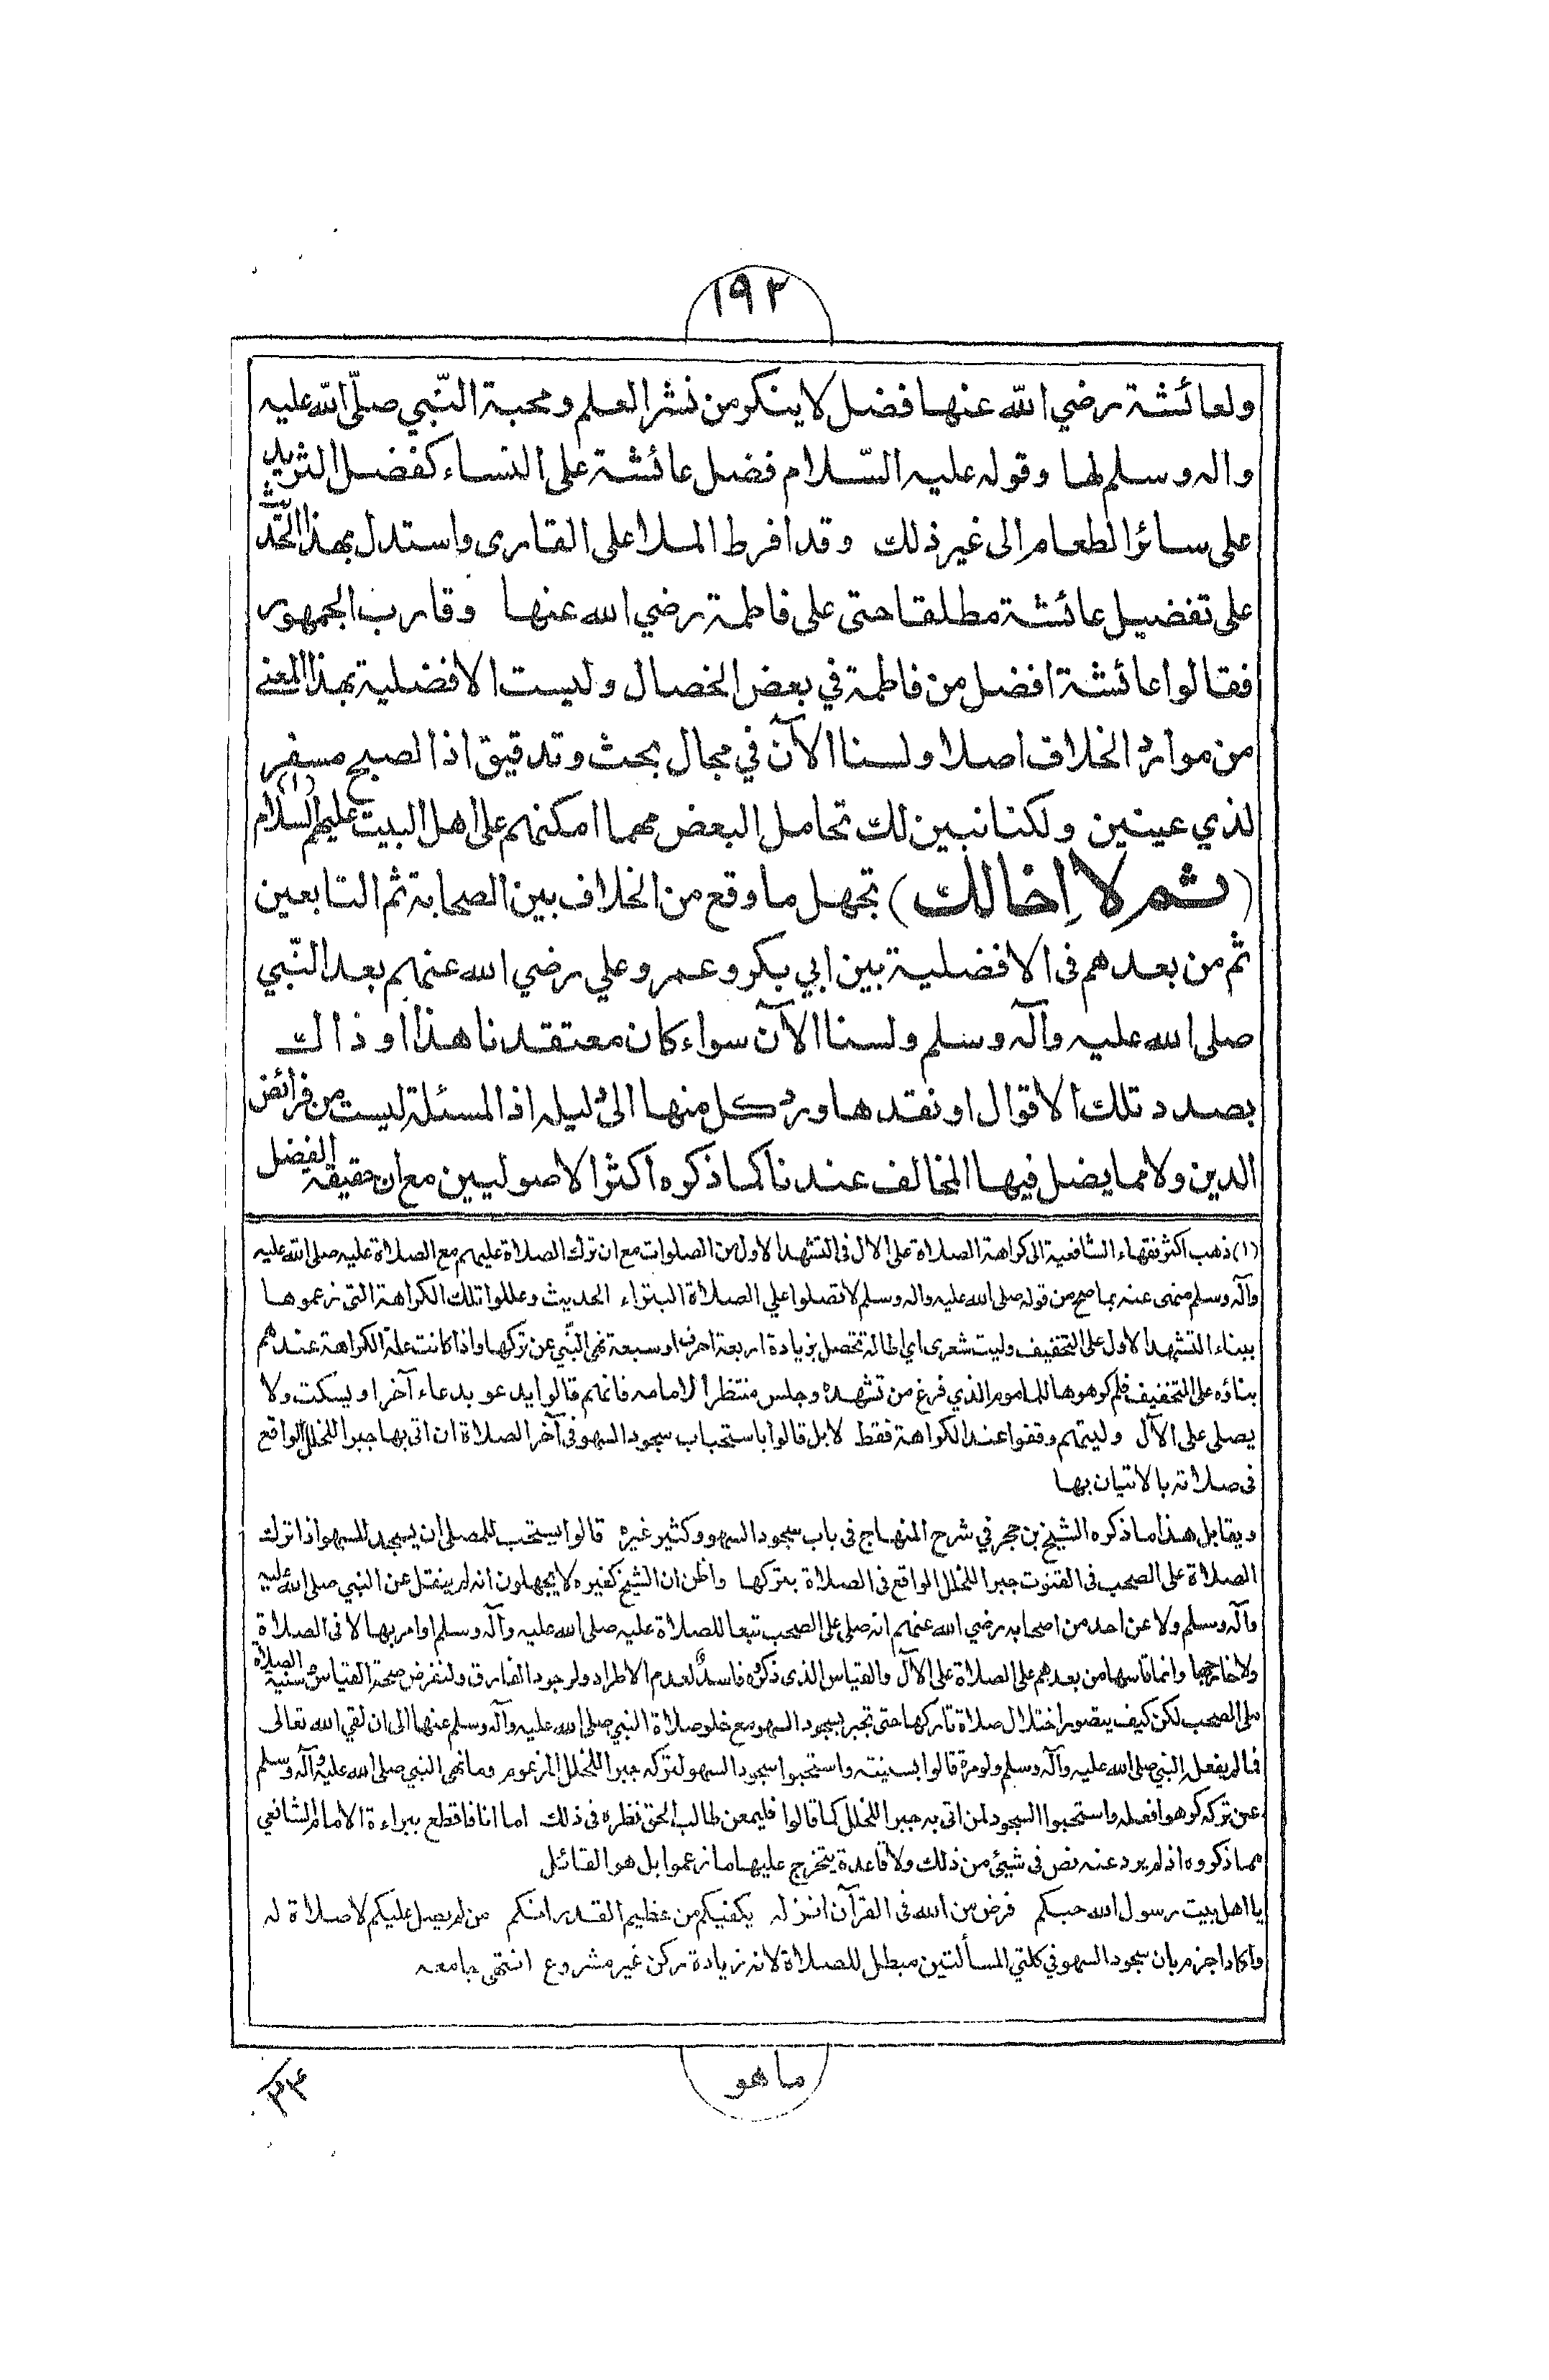 ١٩٢
ولعائشة رضي الله عنها فضل لا ينكر من نشر العلم ومحبة النّبي صلّى الله عليه
واله وسلم لها وقوله عليه السّلام فضل عائشة على النساء كفضل الثريد
على سائر الطعام الى غير ذلك وقد افرط الملا على القارى واستدل بهذا الحديث
على تفضيل عائشة مطلقا حتى على فاطمة رضي الله عنها وقارب الجمهور
فقالوا عائشة افضل من فاطمة في بعض الخصال وليست الافضلية بهذا المعنى
من موارد الخلاف اصلا ولسنا الآن في مجال بحث وتدقيق اذ الصبح مسفر
لذي عينين ولكنا نبين لك تحامل البعض مهما امكنهم على اهل البيت عليهم السلام (١)
(ثم لا اِخالك) تجهل ما وقع من الخلاف بين الصحابة ثم التابعين
ثم من بعدهم فى الافضلية بين ابي بكر وعمر وعلي رضي الله عنهم بعد النّبي
صلى الله عليه وآله وسلم ولسنا الآن سواء كان معتقدنا هذا او ذاك
بصدد تلك الاقوال او نقدها ورد كل منها الى دليله اذ المسئلة ليست من فرائض
الدين ولا مما يضل فيها المخالف عندنا كما ذكره اكثر الاصوليين مع ان حقيقة الفضل
(١) ذهب اكثر فقهاء الشافعية الى كراهة الصلاة على الال فى التشهد الاول من الصلوات مع ان ترك الصلاة عليهم مع الصلاة عليه صلى الله عليه
وآله وسلم منهى عنه بما صح من قوله صلى الله عليه واله وسلم لا تصلوا علي الصلاة البتراء الحديث وعللوا تلك الكراهة التى زعموها
ببناء التشهد الاول على التخفيف وليت شعرى اي اطالة تحصل بزيادة اربعة احرف او سبعة نهى النّبي عن تركها واذا كانت علة الكراهة عندهم
بناؤه على التخفيف فلم كرهوها للماموم الذي فرغ من تشهده وجلس منتظرا لامامه فانهم قالوا يدعو بدعاء آخر او يسكت ولا
يصلى على الآل وليتهم وقفوا عند الكراهة فقط لا بل قالوا باستحباب سجود السهو فى آخر الصلاة ان اتى بها جبرا للخلل الواقع
فى صلاته بالاتيان بها
ويقابل هذا ما ذكره الشيخ بن حجر في شرح المنهاج فى باب سجود السهو وكثير غيره قالوا يستحب للمصلى ان يسجد للسهو اذا ترك
الصلاة على الصحب فى القنوت جبرا للخلل الواقع فى الصلاة بتركها واظن ان الشيخ كغيره لا يجهلون انه لم ينقل عن النبي صلى الله عليه
وآله وسلم ولا عن احد من اصحابه رضي الله عنهم انه صلى على الصحب تبعا للصلاة عليه صلى الله عليه وآله وسلم او امر بها لا فى الصلاة
ولا خارجها وانما قاسها من بعدهم على الصلاة على الآل والقياس الذى ذكروه فاسد لعدم الاطراد ولوجود الفارق ولنفرض صحة القياس وسنية الصلاة
على الصحب لكن كيف يتصور اختلال صلاة تاركها حتى تجبر بسجود السهو مع خلو صلاة النبي صلى الله عليه وآله وسلم عنها الى ان لقي الله تعالى
فما لم يفعله النبي صلى الله عليه وآله وسلم ولو مرة قالوا بسنيته واستحبوا سجود السهو لتركه جبرا للخلل المزعوم وما نهى النبي صلى الله عليه وآله وسلم
عن تركه كرهوا فعله واستحبوا السجود لمن اتى به جبرا للخلل كما قالوا فليمعن طالب الحق نظره فى ذلك اما انا فاقطع ببراءة الامام الشافعي
مما ذكروه اذ لم يرد عنه نص فى شيئ من ذلك ولا قاعدة يتخرج عليها ما زعموا بل هو القائل
يا اهل بيت رسول الله حبكم فرض من الله فى القرآن انزله يكفيكم من عظيم القدر انكم من لم يصل عليكم لا صلاة له
واكاد اجزم بان سجود السهو في كلتي المسألتين مبطل للصلاة لانه زيادة ركن غير مشروع انتهى جامعه
ما هو